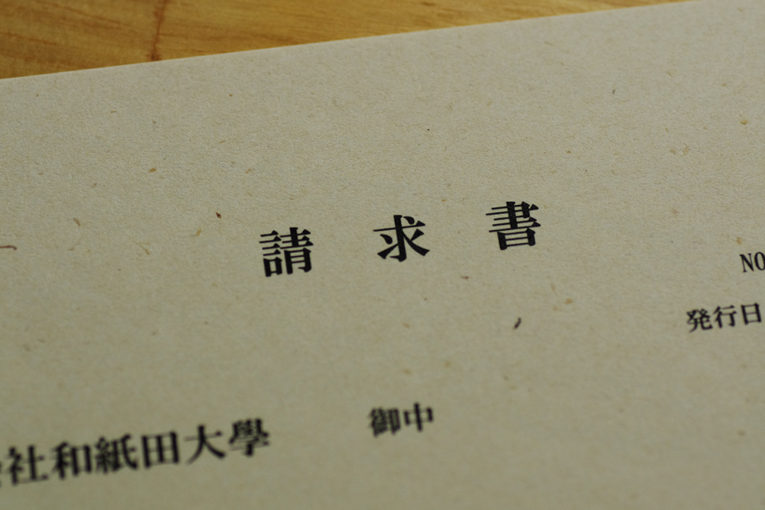 請求書
NO
発行日
社和紙田大學 御中